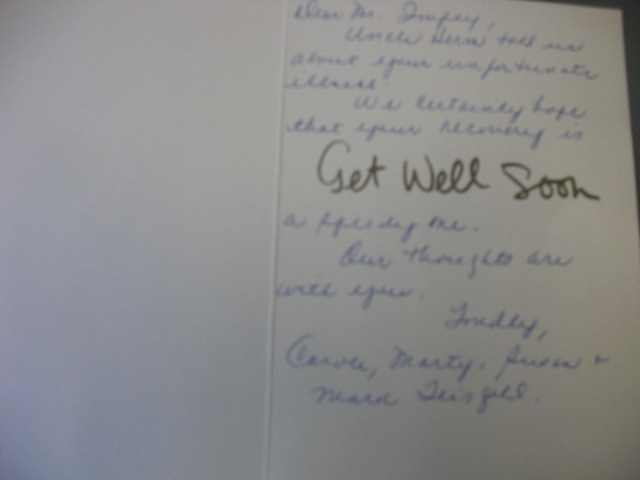 Dear Mr. Impey,
Uncle Herm told us
about your unfortunate
illness.
We certainly hope
that your recovery is
Get Well Soon
a speedy one.
Our thoughts are
with you.
Fondly,
Carole, Marty, Susan +
Mark